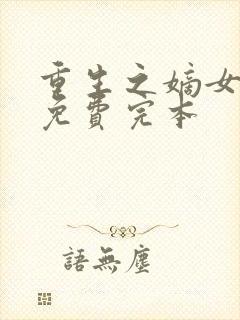 重生之嫡女
免費完本
語無塵